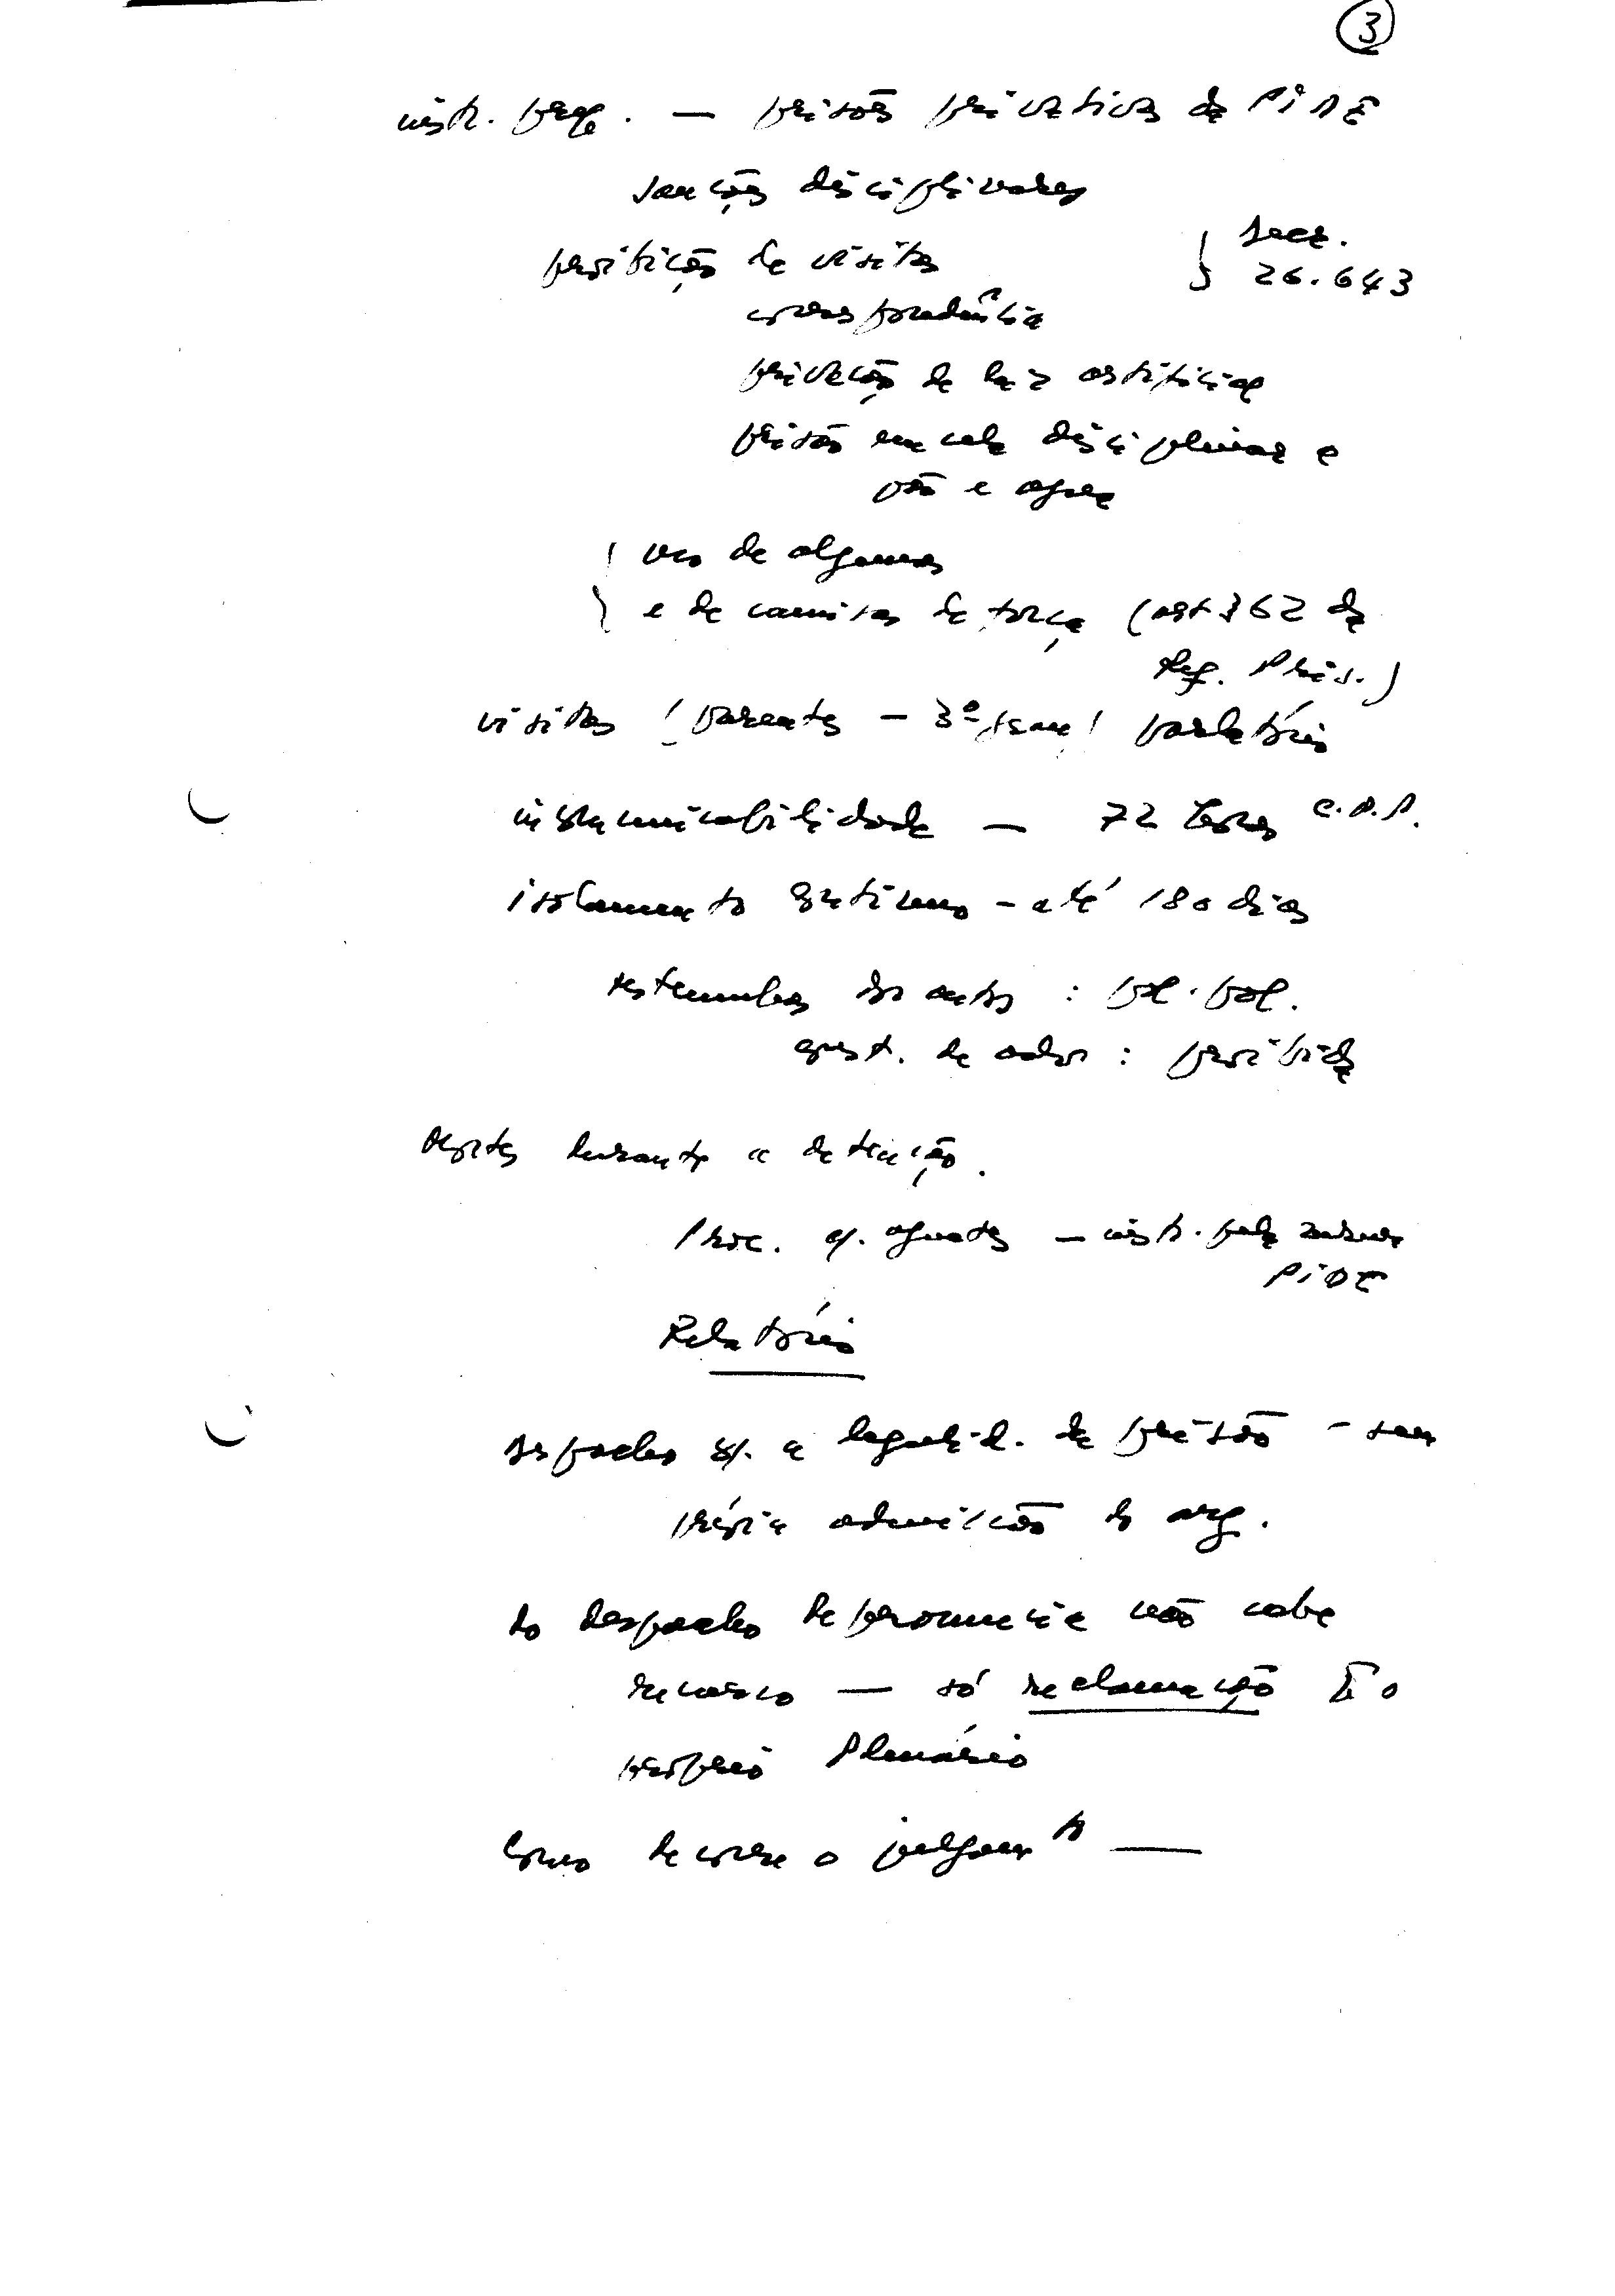 3
instr. prep. — prisões privativas da PIDE
sanções disciplinares
proibição de visitas } Decr. 26.643
correspondência
privação de luz artificial
prisão em cela disciplinar e
pão e agua
{ uso de algemas
e de camisas de força (art 362 da
Ref. Pris.)
visitas ( parentes — 3º grau ) parlatório
incomunicabilidade — 72 horas C.P.P.
isolamento contínuo — até 180 dias
testemunhas dos autos : pol. pol.
quest. de ordem : proibida
Mortes durante a detenção.
Proc. c/. agentes — instr. pela mesma
PIDE
Relatório
despacho s/. a legalid. da prisão — sem
prévia admissão do arg.
do despacho de pronuncia não cabe
recurso — só reclamação p̄ o
próprio Plenário
Como decorre o julgamto —